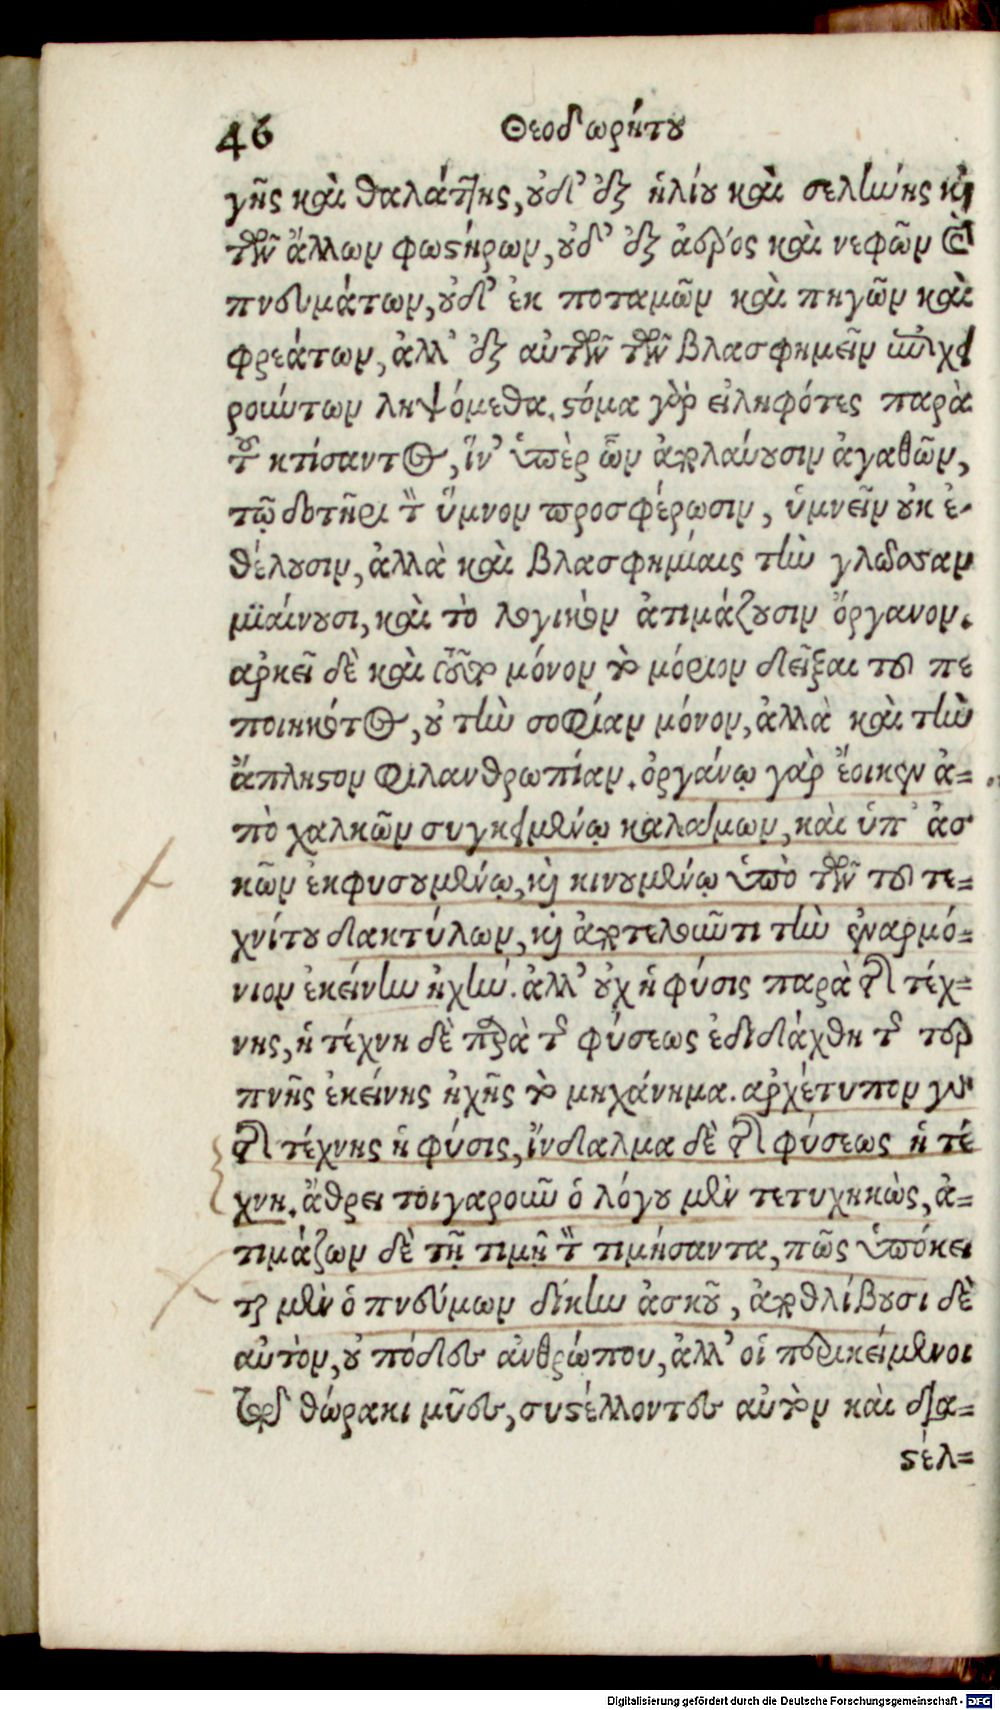 46 Θεοδωρήτου
γῆς καὶ θαλάττης, οὐδ' ἐξ ἡλίου καὶ σελήνης καὶ
τῶν ἄλλων φωστήρων, οὐδ' ἐξ ἀέρος καὶ νεφῶν καὶ
πνευμάτων, οὐδ' ἐκ ποταμῶν καὶ πηγῶν καὶ
φρεάτων, ἀλλ' ἐξ αὐτῶν τῶν βλασφημεῖν ἐπιχει
ρούντων ληψόμεθα. στόμα γὰρ εἰληφότες παρὰ
τοῦ κτίσαντος, ἵν' ὑπὲρ ὧν ἀπολαύουσιν ἀγαθῶν,
τῷ δοτῆρι τὸν ὕμνον προσφέρωσιν, ὑμνεῖν οὐκ ἐ-
θέλουσιν, ἀλλὰ καὶ βλασφημίαις τὴν γλῶσσαν
μιαίνουσι, καὶ τὸ λογικὸν ἀτιμάζουσιν ὄργανον.
ἀρκεῖ δὲ καὶ τοῦτο μόνον τὸ μόριον δεῖξαι τοῦ πε
ποιηκότος, οὐ τὴν σοφίαν μόνον, ἀλλὰ καὶ τὴν
ἄπληστον φιλανθρωπίαν. ὀργάνῳ γὰρ ἔοικεν ἀ-
πὸ χαλκῶν συγκειμένῳ καλάμων, καὶ ὑπ' ἀσ
κῶν ἐκφυσουμένῳ, καὶ κινουμένῳ ὑπὸ τῶν τοῦ τε-
χνίτου δακτύλων, καὶ ἀποτελοῦντι τὴν ἐναρμό-
νιον ἐκείνην ἠχήν. ἀλλ' οὐχ ἡ φύσις παρὰ τῆς τέχ-
νης, ἡ τέχνη δὲ παρὰ τῆς φύσεως ἐδιδάχθη τῆς τερ
πνῆς ἐκείνης ἠχῆς τὸ μηχάνημα. ἀρχέτυπον γὰρ
τῆς τέχνης ἡ φύσις, ἴνδαλμα δὲ τῆς φύσεως ἡ τέ
χνη. ἄθρει τοιγαροῦν ὁ λόγου μὲν τετυχηκὼς, ἀ-
τιμάζων δὲ τῇ τιμῇ τὸν τιμήσαντα, πῶς ὑπόκει
ται μὲν ὁ πνεύμων δίκην ἀσκοῦ, ἀποθλίβουσι δὲ
αὐτὸν, οὐ πόδες ἀνθρώπου, ἀλλ' οἱ περικείμενοι
τῷ θώρακι μῦες, συστέλλοντες αὐτὸν καὶ δια-
στέλ-
Digitalisierung gefördert durch die Deutsche Forschungsgemeinschaft - DFG